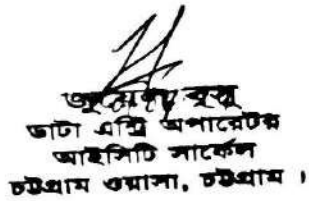 ডাটা এন্ট্রি অপারেটর
আইসিটি সার্কেল
চট্টগ্রাম ওয়াসা, চট্টগ্রাম।